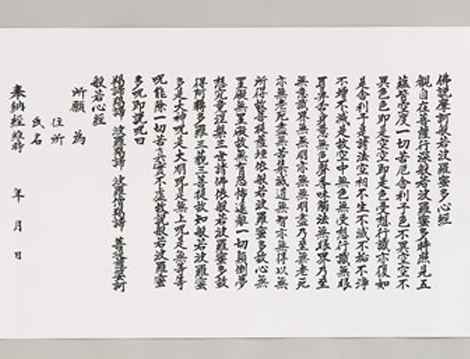 佛説摩訶般若波羅蜜多心經
觀自在菩薩行深般若波羅蜜多時照見五
蘊皆空度一切苦厄舎利子色不異空空不
異色色即是空空即是色受想行識亦復如
是舎利子是諸法空相不生不滅不垢不浄
不増不減是故空中無色無受想行識無眼
耳鼻舌身意無色聲香味觸法無眼界乃至
無意識界無無明亦無無明盡乃至無老死
亦無老死盡無苦集滅道無智亦無得以無
所得故菩提薩埵依般若波羅蜜多故心無
罣礙無罣礙故無有恐怖遠離一切顛倒夢
想究竟涅槃三世諸佛依般若波羅蜜多故
得阿耨多羅三藐三菩提故知般若波羅蜜
多是大神呪是大明呪是無上呪是無等等
呪能除一切苦真實不虚故説般若波羅蜜
多呪即説呪曰
羯諦羯諦 波羅羯諦 波羅僧羯諦 菩提薩婆訶
般若心經
所願 為
住所
氏名
奉納經維時 年 月 日